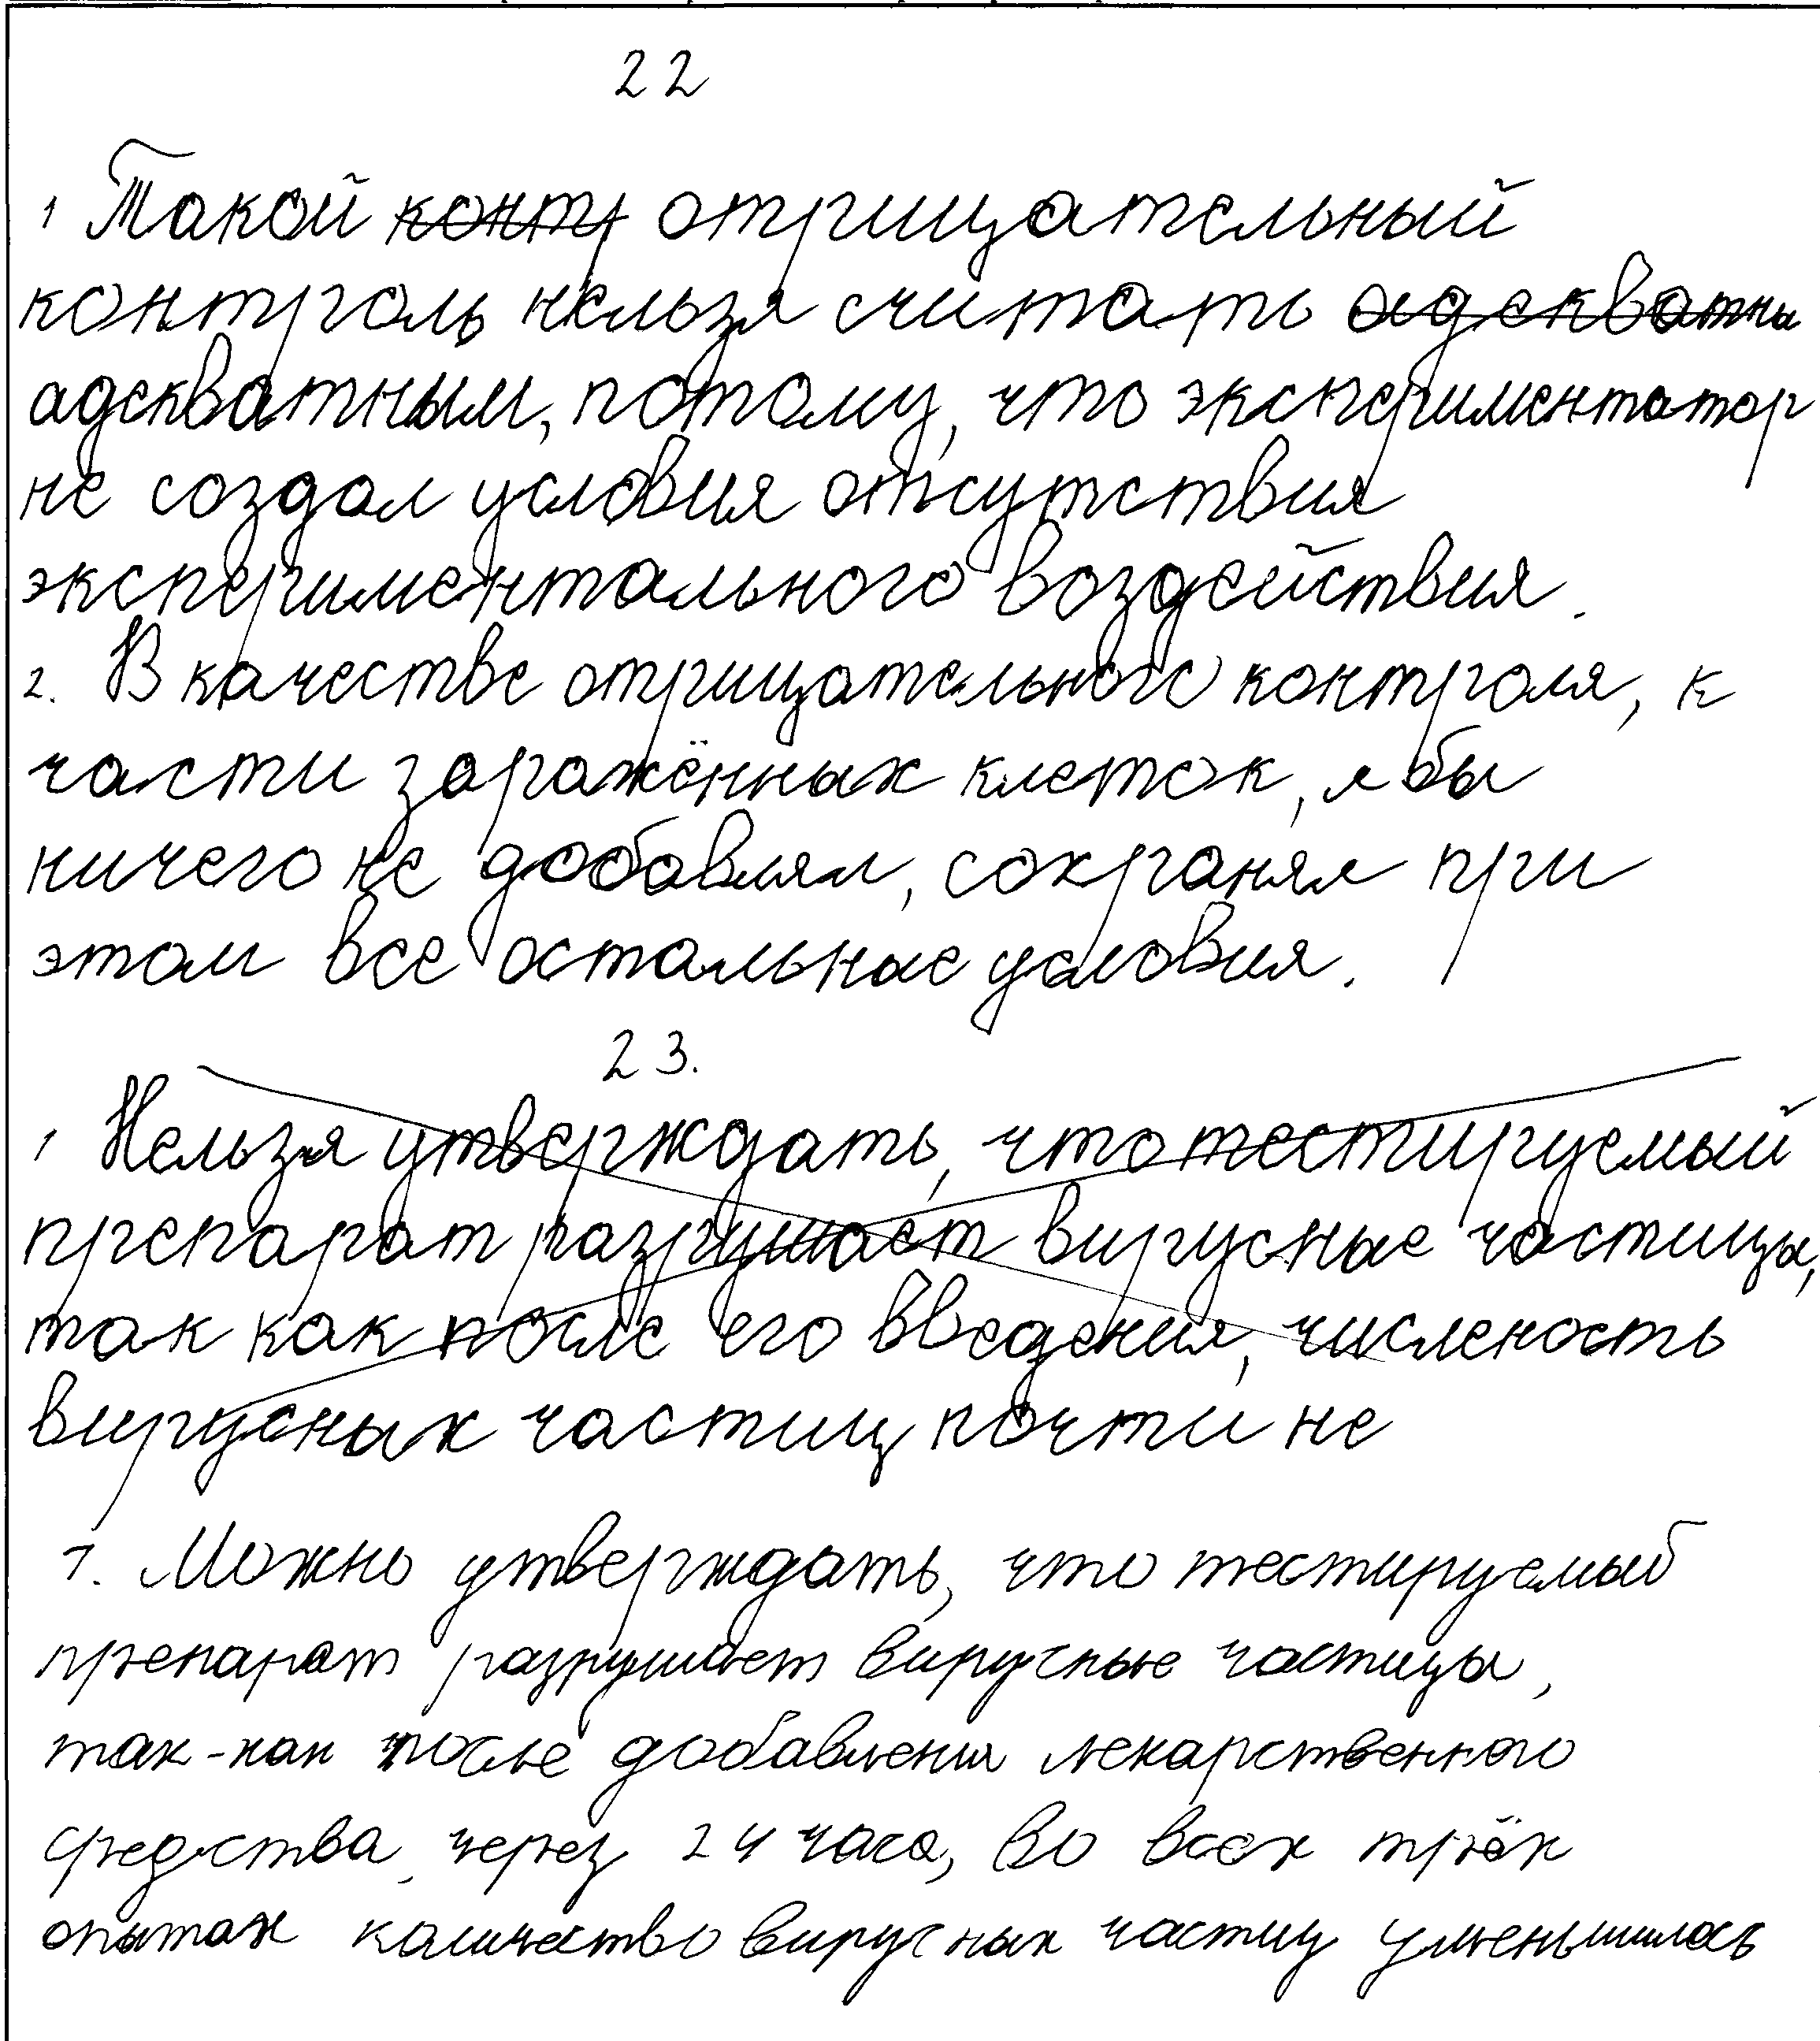 22
1 Такой контр отрицательный
контроль нельзя считать адекватны
адекватным, потому, что экспериментатор
не создал условия отсутствия
экспериментального воздействия.
2. В качестве отрицательного контроля, к
части заражённых клеток, я бы
ничего не добавлял, сохраняя при
этом все остальные условия.
23.
1 Нельзя утверждать, что тестируемый
препарат разрушает вирусные частицы,
так как после его введения, численость
вирусных частиц почти не
1. Можно утверждать, что тестируемый
препарат разрушает вирусные частицы,
так-как после добавления лекарственного
средства, через 24 часа, во всех трёх
опытах количество вирусных частиц уменьшилось